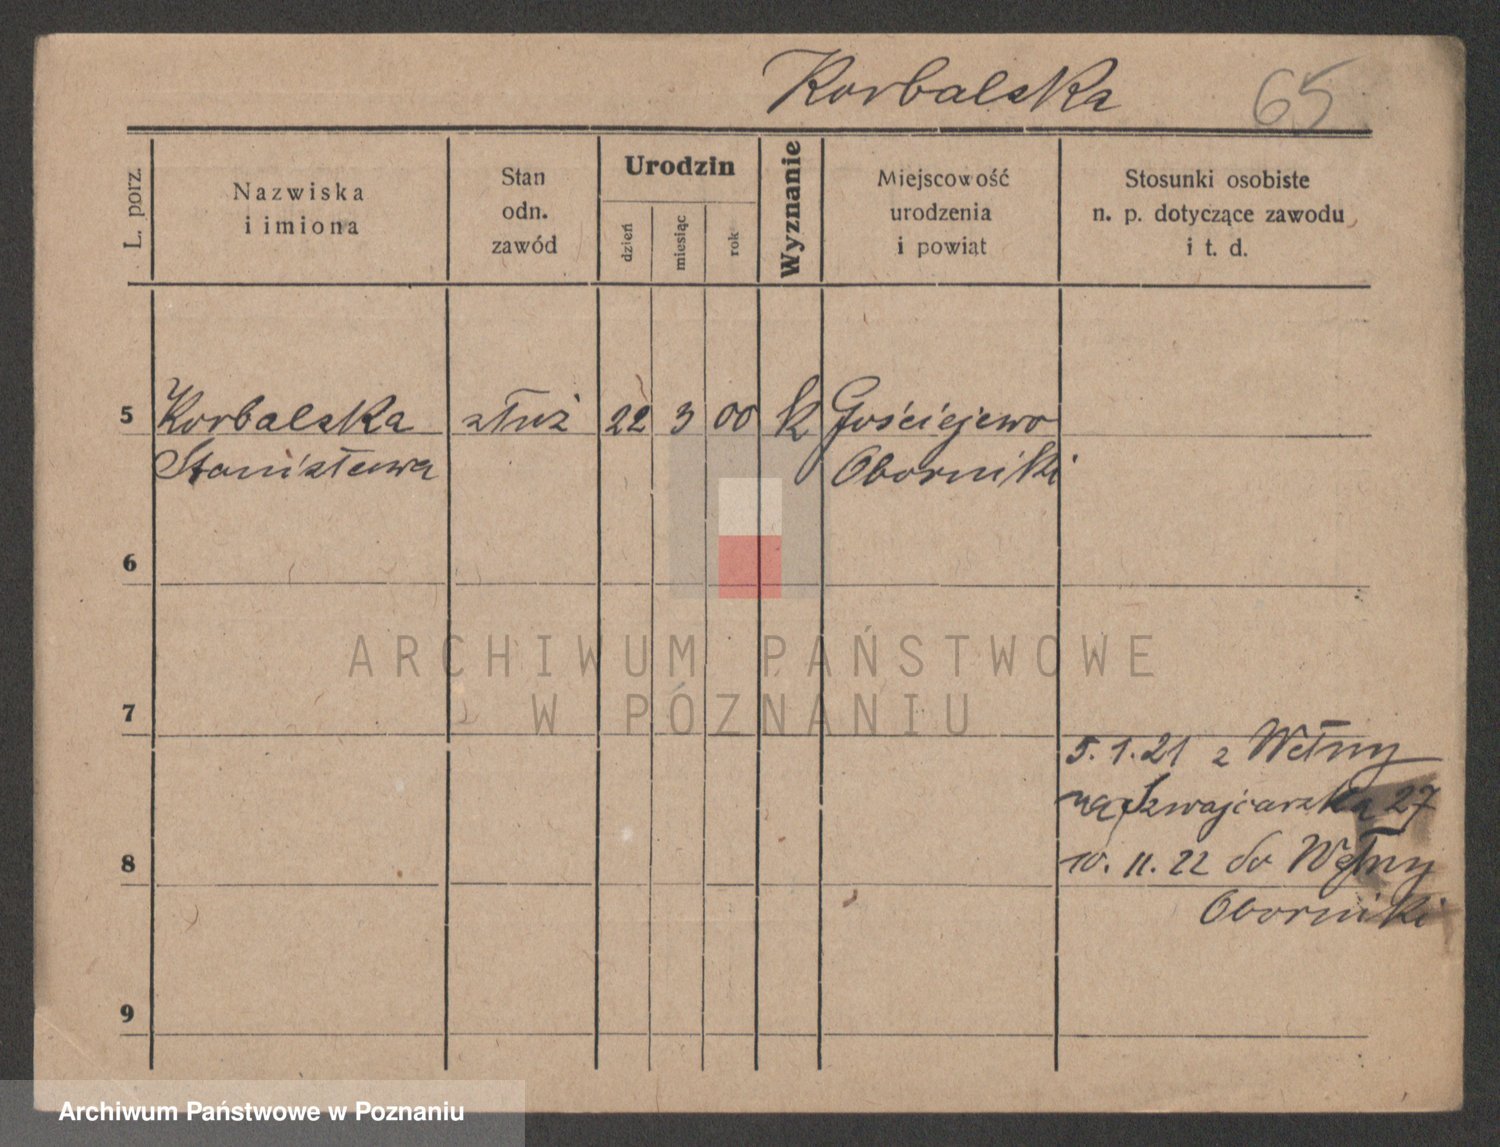 Korbalska 65
L. porz.
Nazwiska
i imiona
Stan
odn.
zawód
Urodzin
dzień
miesiąc
rok
Wyznanie
Miejscowość
urodzenia
i powiat
Stosunki osobiste
n. p. dotyczące zawodu
i t. d.
5 Korbalska służ 22 3 00 k Gościejewo
Stanisława Oborniki
6
ARCHIWUM PAŃSTWOWE
W POZNANIU
7
5.1.21 z Wełny
na Szwajcarska 27
8 10.11.22 do Wełny
Oborniki
9
Archiwum Państwowe w Poznaniu